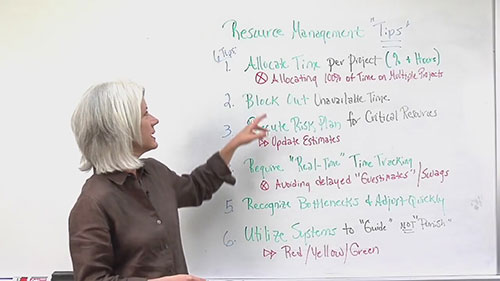 Resource Management "Tips"
6 TIPS
1. Allocate Time per Project (% & Hours)
ⓧ Allocating 100% of Time on Multiple Projects
2. Block Out Unavailable Time
3. Risk Plan for Critical Resources
▷▷ Update Estimates
Require "Real-Time" Time Tracking
ⓧ Avoiding delayed "Guestimates"/Swags
5. Recognize Bottlenecks & Adjust Quickly
6. Utilize Systems to "Guide" NOT "Punish"
▷▷ Red/Yellow/Green